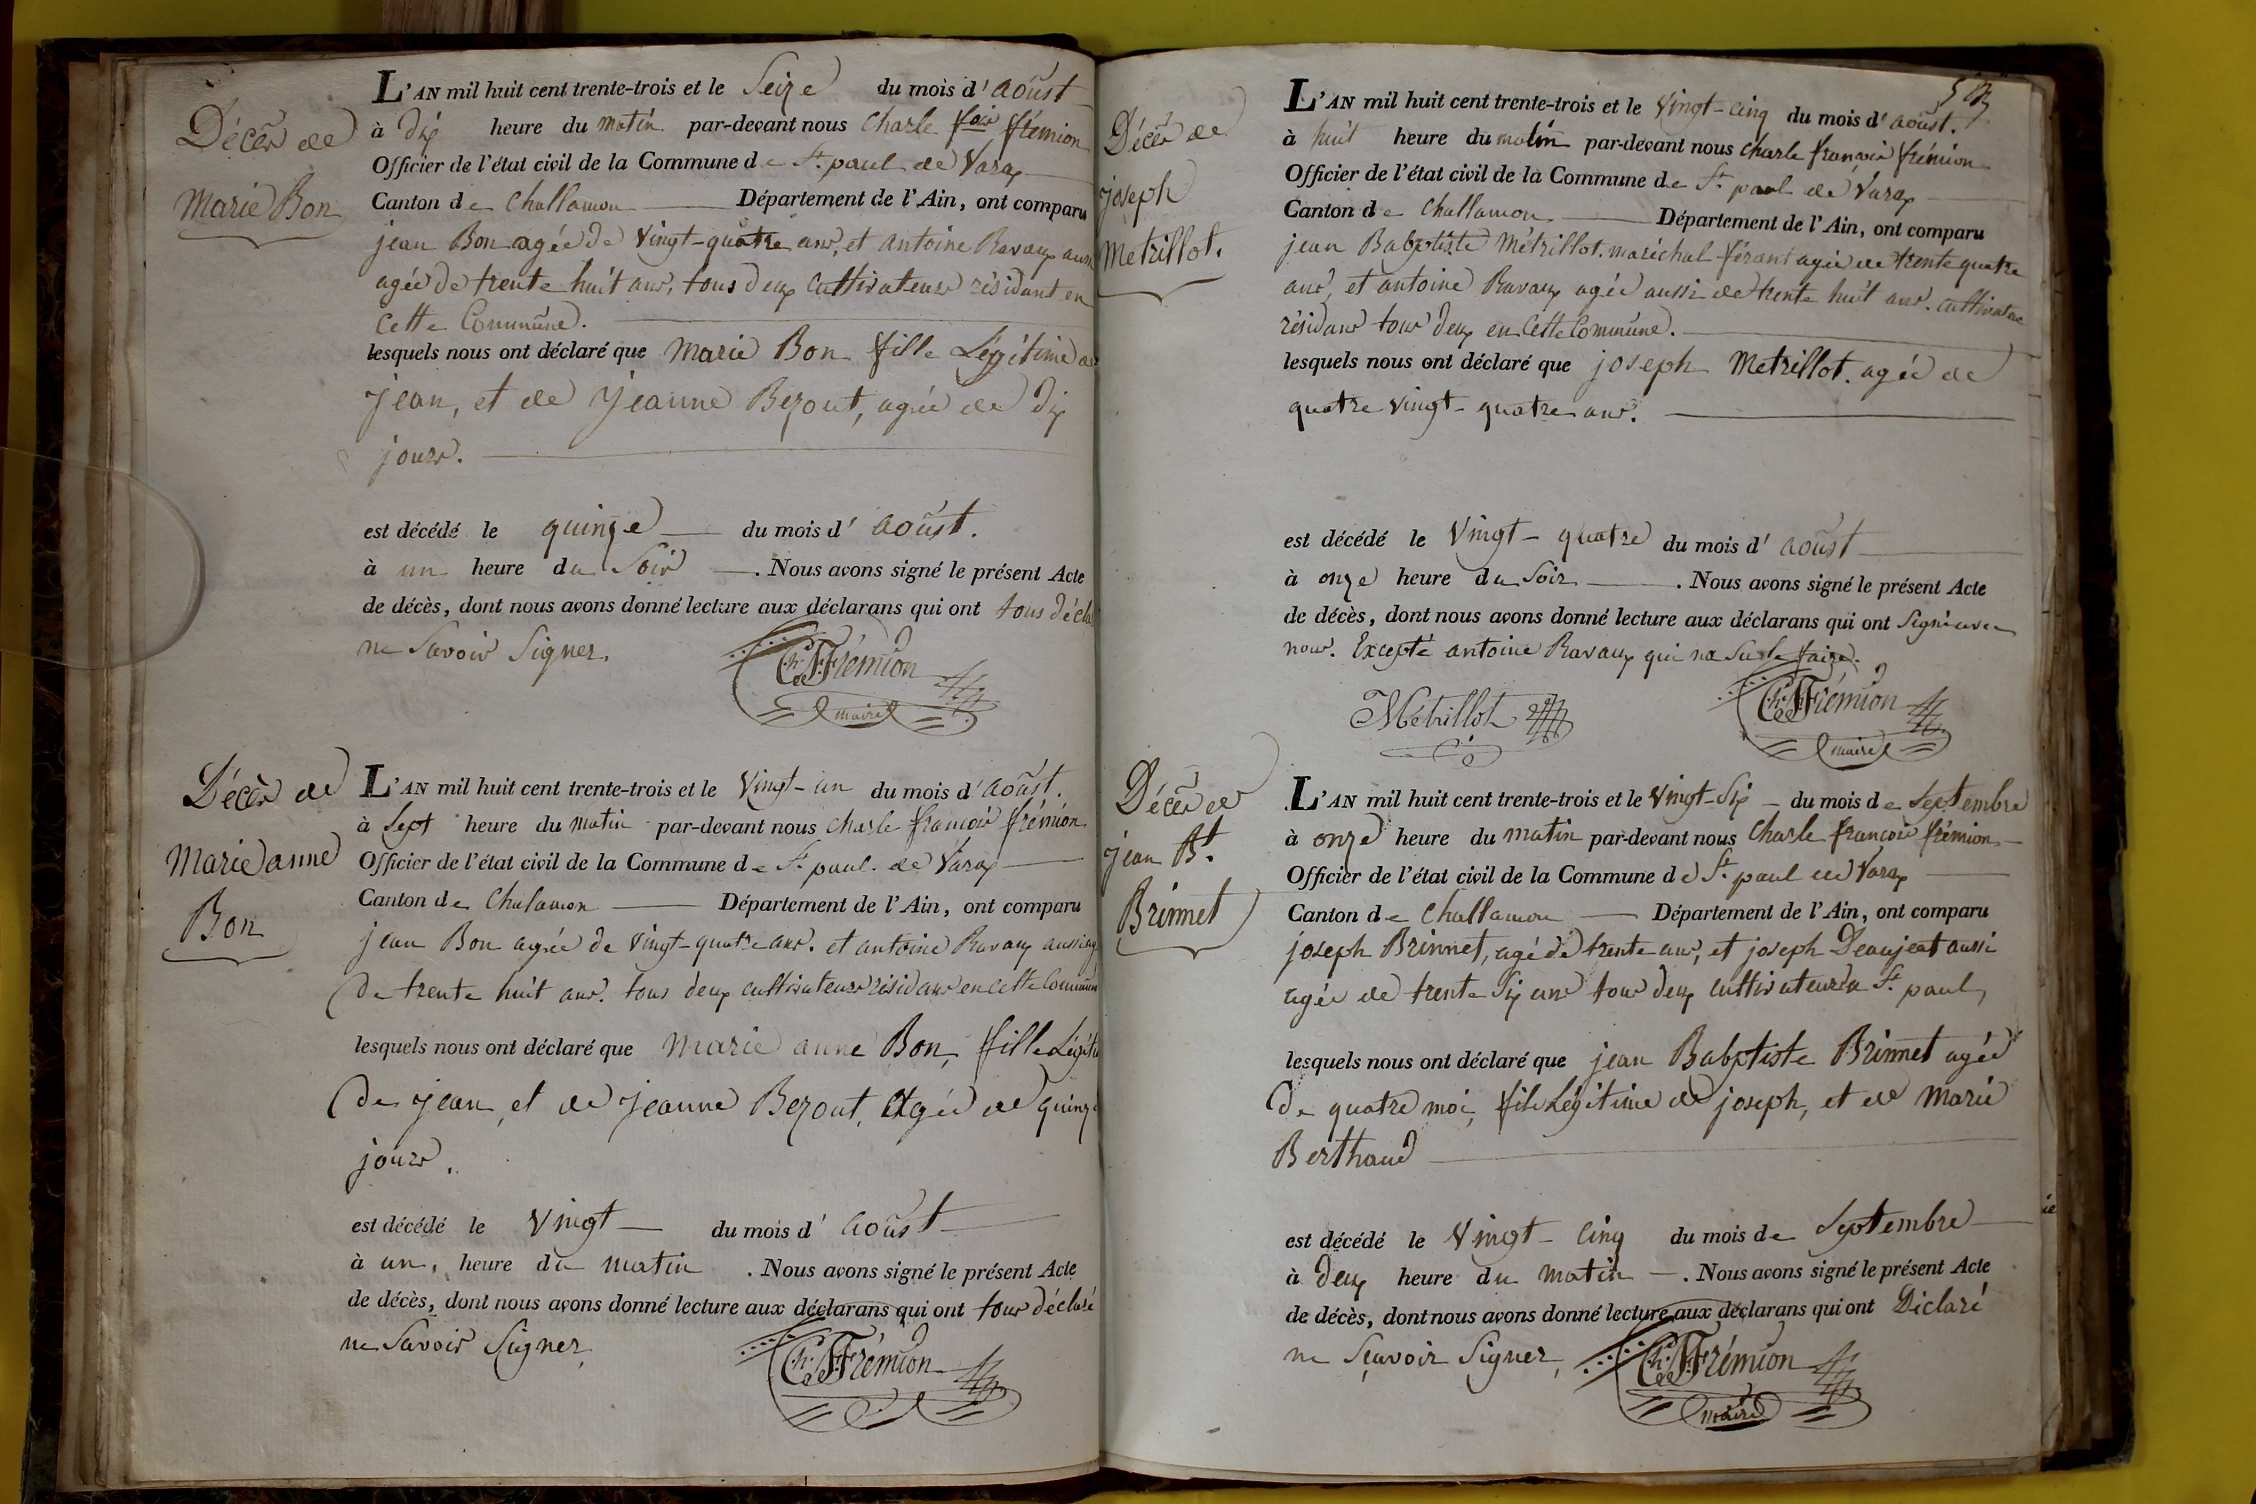 Décès de
Marie Bon
L'AN mil huit cent trente-trois et le Seize du mois d'aoûst
à dix heure du matin par-devant nous Charle fois frémion
Officier de l'état civil de la Commune de St. paul de Varax
Canton de Challamon Département de l'Ain, ont comparu
jean Bon agée de vingt-quatre ans, et antoine Ravaux aussi
agée de trente huit ans, tous deux cultivateurs résidant en
cette Commune.
lesquels nous ont déclaré que Marie Bon fille Légitime de
jean, et de jeanne Bezout, agée de dix
jours.
est décédé le quinze du mois d'aoûst.
à un heure du Soir. Nous avons signé le présent Acte
de décès, dont nous avons donné lecture aux déclarans qui ont tous décla
ne Savoir Signer.
Ch. F. Frémion
maire
Décès de
Marie anne
Bon
L'AN mil huit cent trente-trois et le vingt-un du mois d'aoûst.
à Sept heure du matin par-devant nous Charle francois frémion
Officier de l'état civil de la Commune de St. paul de Varax
Canton de Chalamon Département de l'Ain, ont comparu
jean Bon agée de vingt-quatre ans. et antoine Ravaux aussi ag
de trente huit ans. tous deux cultivateurs résidans en cette Commun
lesquels nous ont déclaré que Marie anne Bon, fille Légiti
de jean, et de jeanne Bezout, agée de quinze
jours.
est décédé le vingt du mois d'aoûst
à un, heure du matin. Nous avons signé le présent Acte
de décès, dont nous avons donné lecture aux déclarans qui ont tous déclaré
ne Savoir Signer
Ch. F. Frémion
Décès de
joseph
Metrillot.
L'AN mil huit cent trente-trois et le vingt-cinq du mois d'aoûst.
à huit heure du matin par-devant nous charle françois frémion
Officier de l'état civil de la Commune de St. paul de Varax
Canton de Challamon Département de l'Ain, ont comparu
jean Babptiste Métrillot. maréchal férant agée de trente quatre
ans, et antoine Ravaux agée aussi de trente huit ans. cultivateur
résidans tous deux en Cette Commune.
lesquels nous ont déclaré que joseph Metrillot. agée de
quatre vingt-quatre ans.
est décédé le Vingt-quatre du mois d'aoûst
à onze heure du Soir. Nous avons signé le présent Acte
de décès, dont nous avons donné lecture aux déclarans qui ont Signé avec
nous. Excepté antoine Ravaux qui na Su le faire.
Métrillot
Ch. F. Frémion
maire
Décès de
jean Bt.
Brinnet
L'AN mil huit cent trente-trois et le vingt-Six du mois de Septembre
à onze heure du matin par-devant nous Charle francois frémion
Officier de l'état civil de la Commune de St. paul de Varax
Canton de Challamon Département de l'Ain, ont comparu
joseph Brinnet, agé de trente ans, et joseph Deaujeat aussi
agée de trente Six ans tous deux cultivateurs a St. paul,
lesquels nous ont déclaré que jean Babptiste Brinnet agée
de quatre moi, fils Légitime de joseph, et de Marie
Berthaud
est décédé le Vingt-Cinq du mois de Septembre
à deux heure du matin. Nous avons signé le présent Acte
de décès, dont nous avons donné lecture aux déclarans qui ont Déclaré
ne Sçavoir Signer,
Ch. F. Frémion
maire